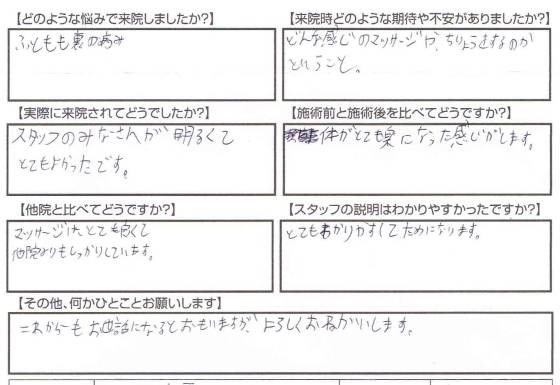 【どのような悩みで来院しましたか?】
ふともも裏の痛み
【来院時どのような期待や不安がありましたか?】
どんな感じのマッサージや、ちりょうをするのか
ということ。
【実際に来院されてどうでしたか?】
スタッフのみなさんが明るくて
とてもよかったです。
【施術前と施術後を比べてどうですか?】
体がとても楽になった感じがします。
【他院と比べてどうですか?】
マッサージは、とても良くて
他院よりもしっかりしています。
【スタッフの説明はわかりやすかったですか?】
とてもわかりやすくてためになります。
【その他、何かひとことお願いします】
これからもお世話になるとおもいますが、よろしくおねがいします。